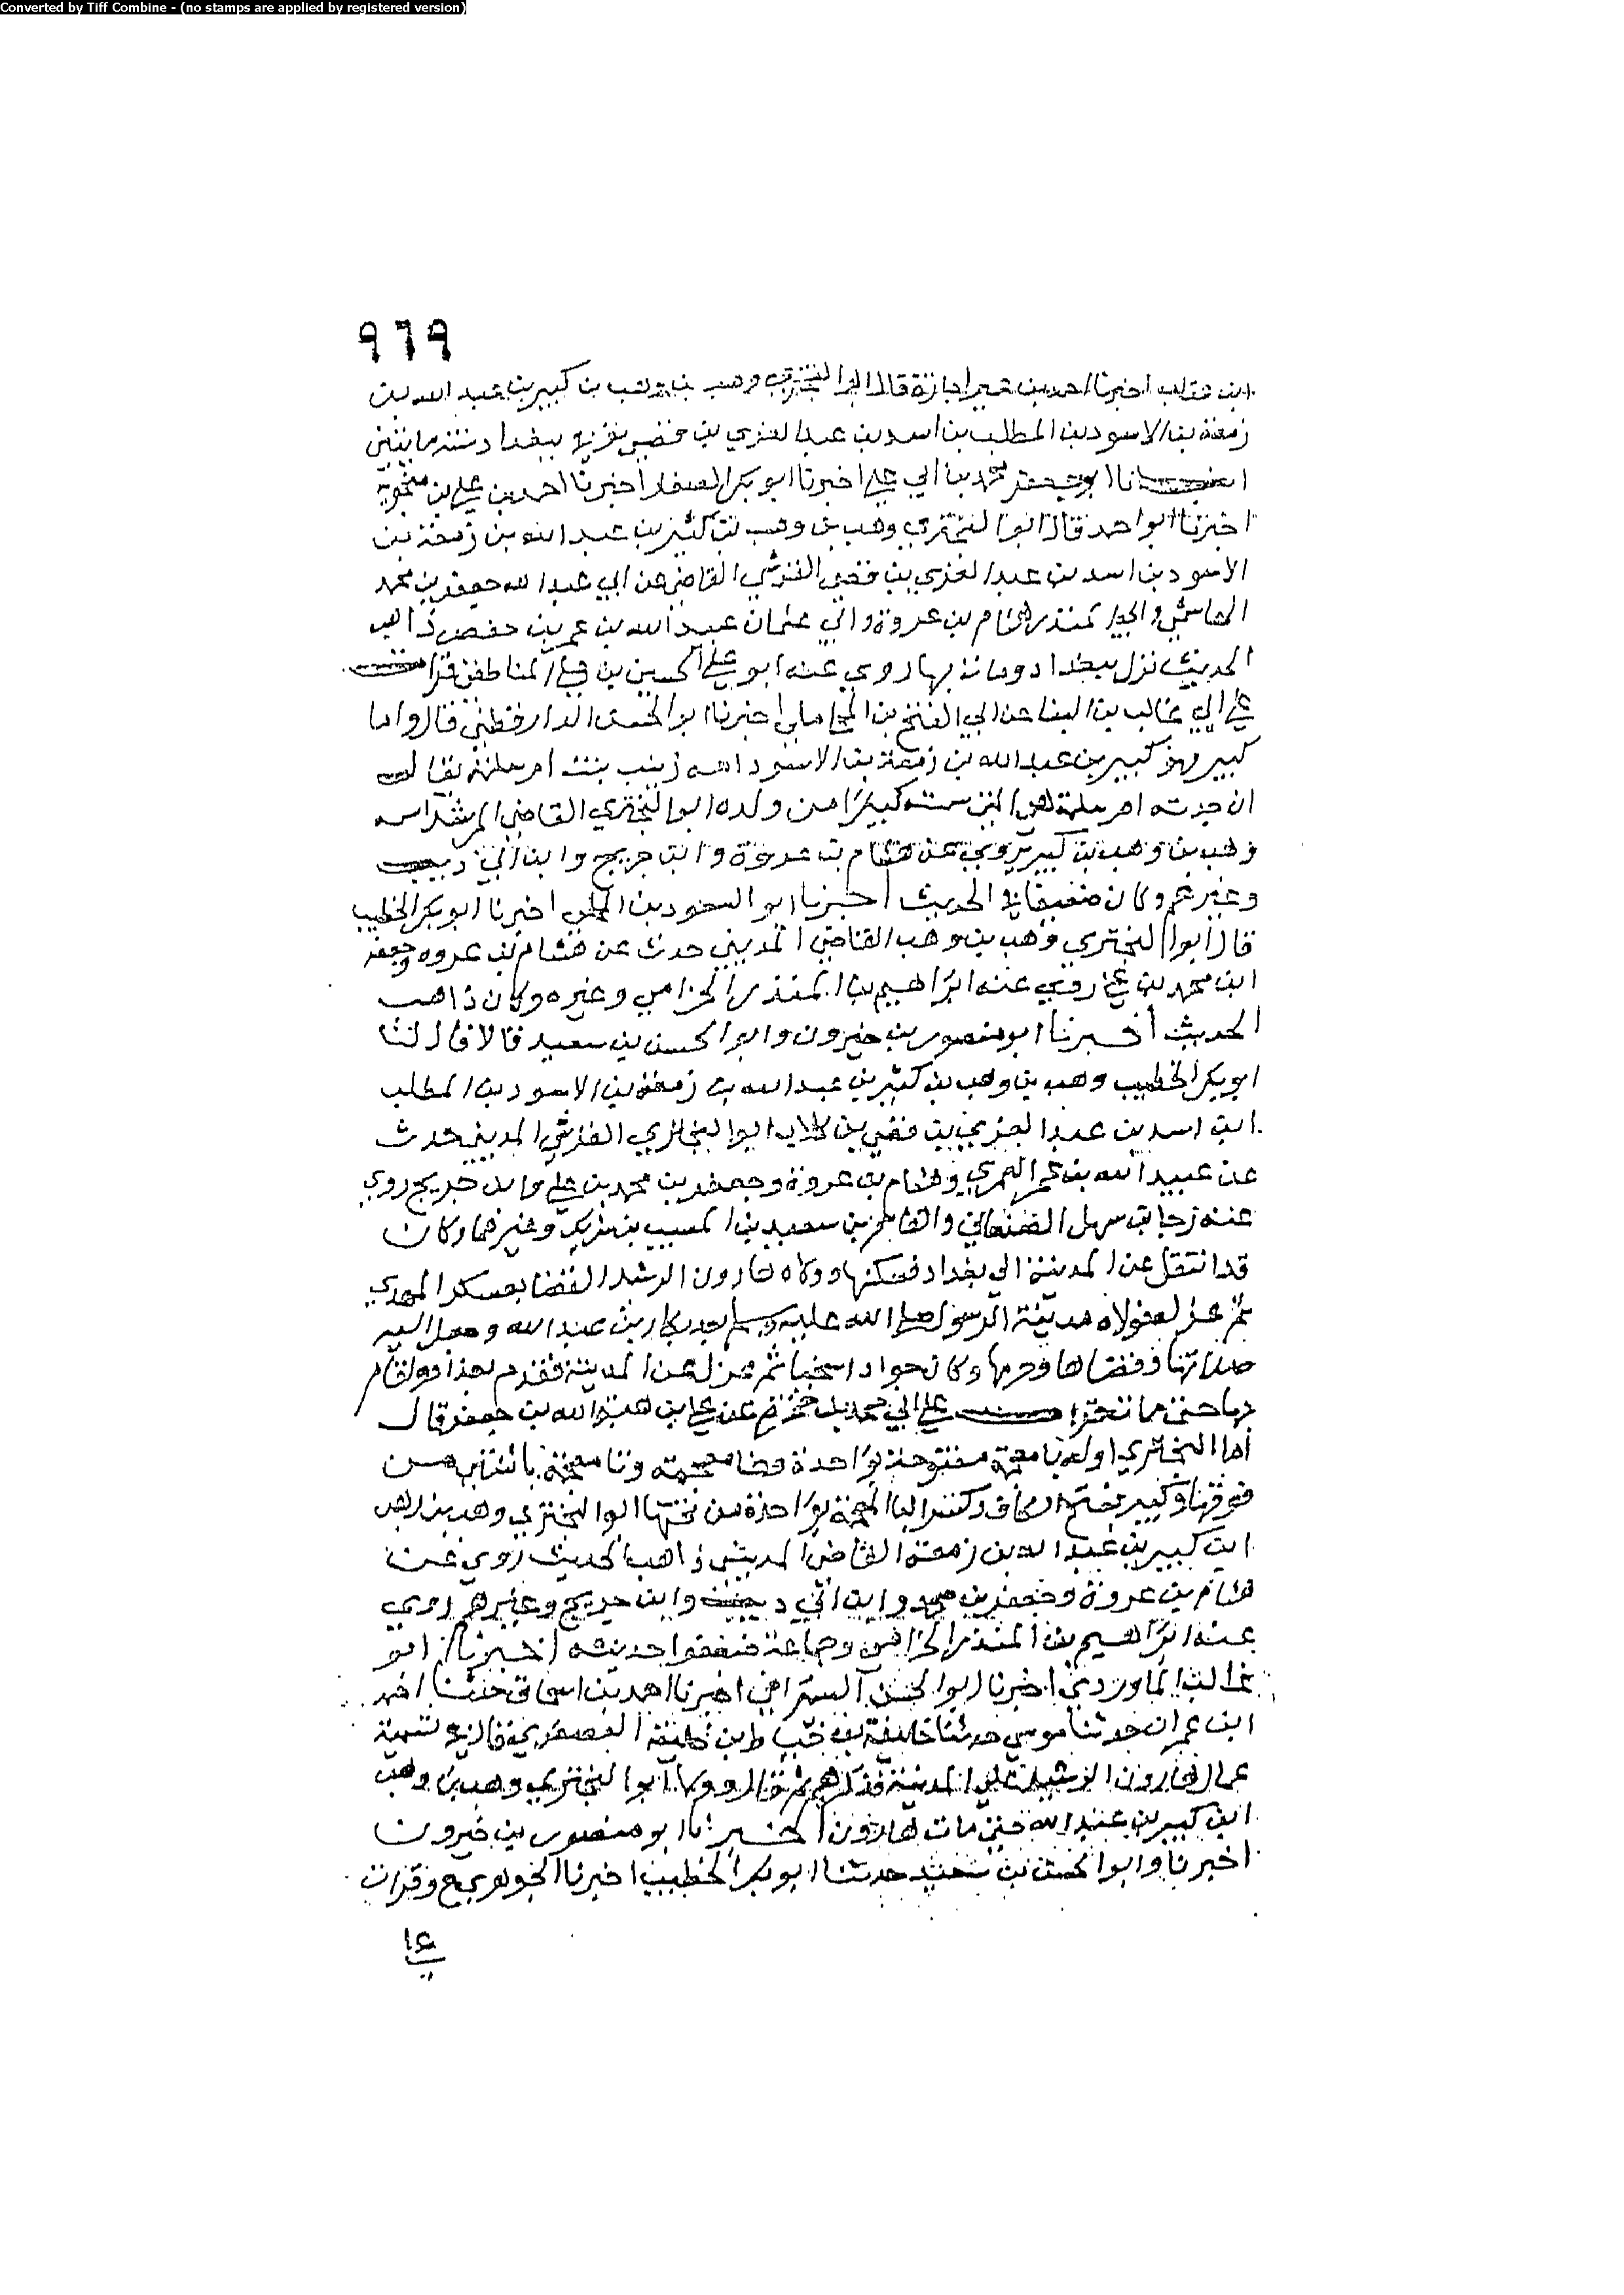 Converted by Tiff Combine - (no stamps are applied by registered version)
٩٦٩
ابن عتاب اخبرنا احمد بن عمير اجازة قال ابو البختري وهب بن وهب بن كبير بن عبد الله بن
زمعة بن الاسود بن المطلب بن اسد بن عبد العزي بن قصي ببغداد سنة مايتين
انا ابو جعفر محمد بن ابي علي اخبرنا ابو بكر الصفار اخبرنا احمد بن علي بن منجويه
اخبرنا ابو احمد قال ابو البختري وهب بن وهب بن كثير بن عبد الله بن زمعة بن
الاسود بن اسد بن عبد العزي بن قصي القرشي القاضي عن ابي عبد الله جعفر بن محمد
الهاشمي وابي المنذر هشام بن عروة وابي عثمان عبيد الله بن عمر بن حفص ذاهب
الحديث نزل ببغداد ومات بها روي عنه ابو علي الحسين بن قرات
علي ابي غالب بن البنا عن ابي الفتح بن المحاملي اخبرنا ابو الحسن الدارقطني قال واما
كبير فهو كبير بن عبد الله بن زمعة بن الاسود امه زينب بنت ام سلمة يقال
ان جدته ام سلمة هي التي سمته كبيرا من ولده ابو البختري القاضي اسمه
وهب بن وهب بن كبير يروي عن هشام بن عروة وابن جريج وابن ابي ذيب
وغيرهم وكان ضعيفا في الحديث اخبرنا ابو السعود بن المجلي اخبرنا ابو بكر الخطيب
قال ابو البختري وهب بن وهب القاضي المديني حدث عن هشام بن عروه وجعفر
ابن محمد بن علي روي عنه ابراهيم بن المنذر الحزامي وغيره وكان ذاهب
الحديث اخبرنا ابو منصور بن خيرون وابو الحسن بن سعيد قالا قال لنا
ابو بكر الخطيب وهب بن وهب بن كثير بن عبد الله بن زمعة بن الاسود بن المطلب
ابن اسد بن عبد العزي بن قصي بن كلاب ابو البختري القرشي المديني حدث
عن عبيد الله بن عمر العمري وهشام بن عروة وجعفر بن محمد بن علي وابن جريج روي
عنه رجا بن سهل الصنعاني والقاسم بن سعيد بن المسيب بن شريك وغيرهما وكان
قد انتقل عن المدينة الي بغداد فسكنها وولاه هارون الرشيد القضا بعسكر المهدي
ثم عزله فولاه مدينة الرسول صلي الله عليه وسلم بعد بكار بن عبد الله وجعل اليه
صلاتها وقضاها وحربها وكان جوادا سخيا ثم عزل عن المدينة فقدم بغداد واقام
بها حتي مات قرا علي ابي محمد بن حمزة عن علي بن هبة الله بن جعفر قال
اما البختري اوله با معجمة مفتوحة بواحدة وخا معجمة وتا معجمة باثنتين من
فوقها وكبير بفتح الكاف وكسر البا المعجمة بواحدة من تحتها ابو البختري وهب بن وهب
ابن كبير بن عبد الله بن زمعة القاضي المديني ذاهب الحديث روي عن
هشام بن عروة وجعفر بن محمد وابن ابي ذيب وابن جريج وغيرهم روي
عنه ابراهيم بن المنذر الحزامي وجماعة ضعفوا حديثه اخبرنا ابو
غالب الماوردي اخبرنا ابو الحسن السيرافي اخبرنا احمد بن اسحاق حدثنا احمد
ابن عمران حدثنا موسي حدثنا خليفة بن خياط بن خليفة العصفري قال في تسمية
عمال هارون الرشيد علي المدينة فذكرهم ثم قال وولاها ابو البختري وهب بن وهب
ابن كبير بن عبد الله حتي مات هارون اخبرنا ابو منصور بن خيرون
اخبرنا وابو الحسن بن سعيد حدثنا ابو بكر الخطيب اخبرنا الجوهري ح وقرات
علي